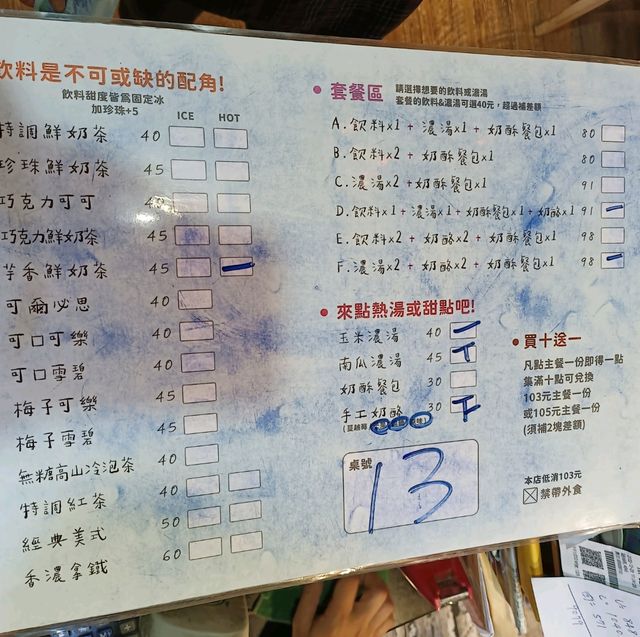 飲料是不可或缺的配角!
飲料甜度皆為固定冰
加珍珠+5
ICE HOT
特調鮮奶茶 40
珍珠鮮奶茶 45
巧克力可可 40
巧克力鮮奶茶 45
芋香鮮奶茶 45
可爾必思 40
可口可樂 40
可口雪碧 40
梅子可樂 45
梅子雪碧 45
無糖高山冷泡茶 40
特調紅茶 40
經典美式 50
香濃拿鐵 60
套餐區
請選擇想要的飲料或濃湯
套餐的飲料&濃湯可選40元,超過補差額
A.飲料x1 + 濃湯x1 + 奶酥餐包x1 80
B.飲料x2 + 奶酥餐包x1 80
C.濃湯x2 + 奶酥餐包x1 91
D.飲料x1 + 濃湯x1 + 奶酥餐包x1 + 奶酪x1 91
E.飲料x2 + 奶酪x2 + 奶酥餐包x1 98
F.濃湯x2 + 奶酪x2 + 奶酥餐包x1 98
來點熱湯或甜點吧!
玉米濃湯 40 一
南瓜濃湯 45 丅
奶酥餐包 30
手工奶酪 30 下
(蔓越莓
桌號
13
買十送一
凡點主餐一份即得一點
集滿十點可兌換
103元主餐一份
或105元主餐一份
(須補2塊差額)
本店低消103元
禁帶外食